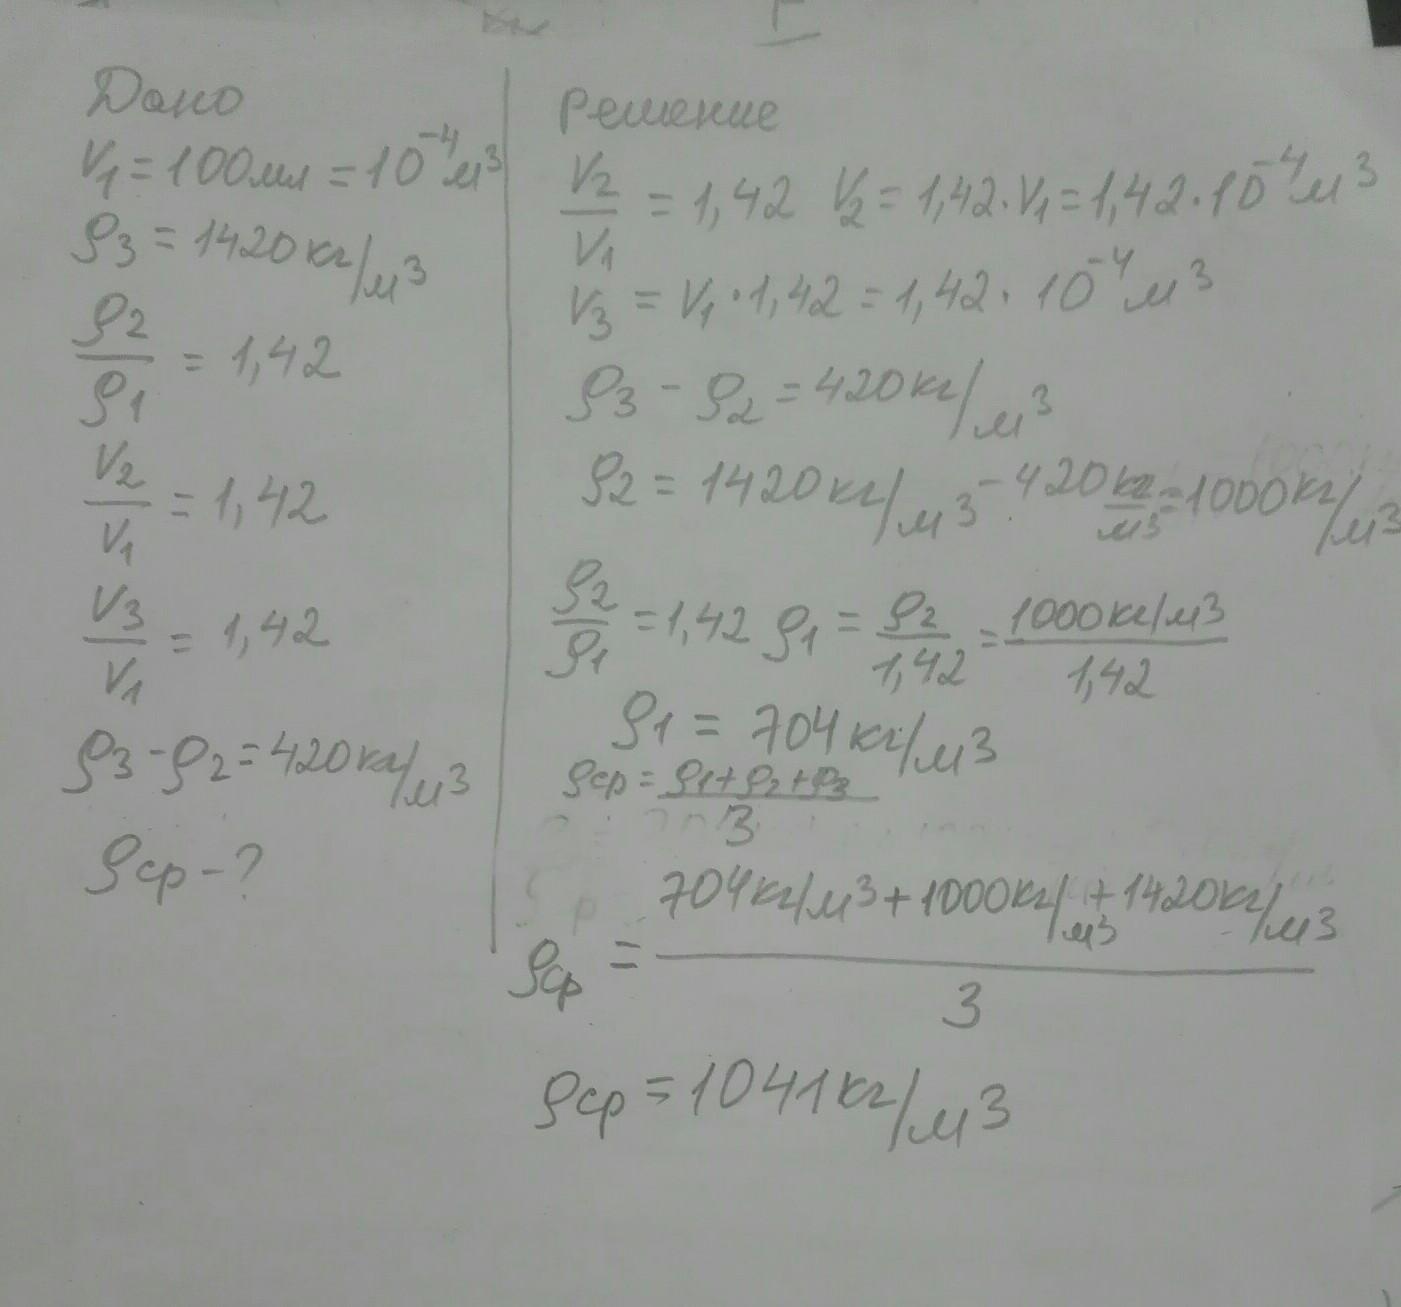 Дано
V1 = 100мл = 10^-4 м^3
ρ3 = 1420 кг/м3
ρ2/ρ1 = 1,42
V2/V1 = 1,42
V3/V1 = 1,42
ρ3 - ρ2 = 420 кг/м3
ρср - ?
Решение
V2/V1 = 1,42 V2 = 1,42·V1 = 1,42·10^-4 м^3
V3 = V1·1,42 = 1,42·10^-4 м^3
ρ3 - ρ2 = 420 кг/м3
ρ2 = 1420 кг/м3 - 420 кг/м3 = 1000 кг/м3
ρ2/ρ1 = 1,42 ρ1 = ρ2/1,42 = 1000 кг/м3/1,42
ρ1 = 704 кг/м3
ρср = ρ1+ρ2+ρ3/3
ρср = 704 кг/м3 + 1000 кг/м3 + 1420 кг/м3/3
ρср = 1041 кг/м3